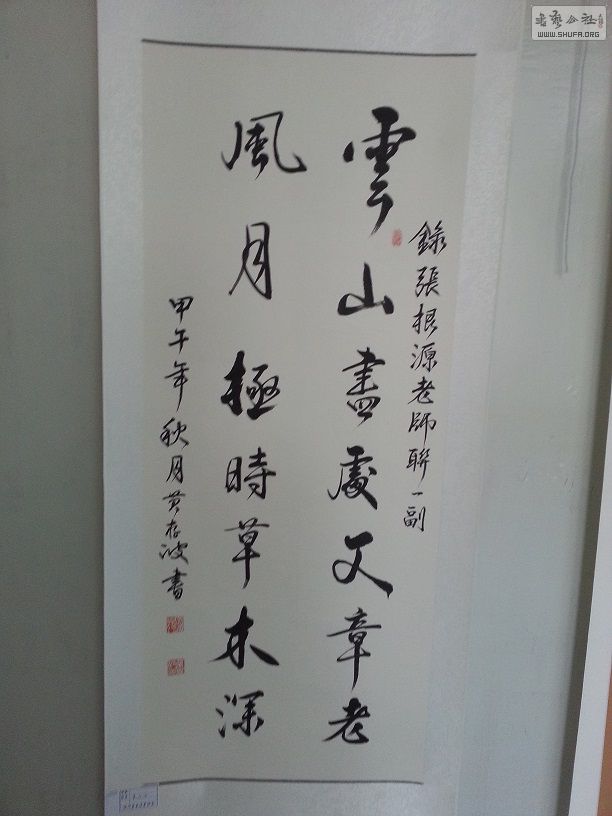 錄張根源老師聯一副
雲山盡處文章老
風月極時草木深
甲午年秋月黄存波書
書藝公社
WWW.SHUFA.ORG